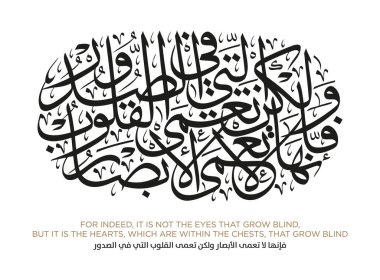 فإنها لا تعمى الأبصار
ولكن تعمى القلوب
التي في الصدور
FOR INDEED, IT IS NOT THE EYES THAT GROW BLIND,
BUT IT IS THE HEARTS, WHICH ARE WITHIN THE CHESTS, THAT GROW BLIND
فإنها لا تعمى الأبصار ولكن تعمى القلوب التي في الصدور